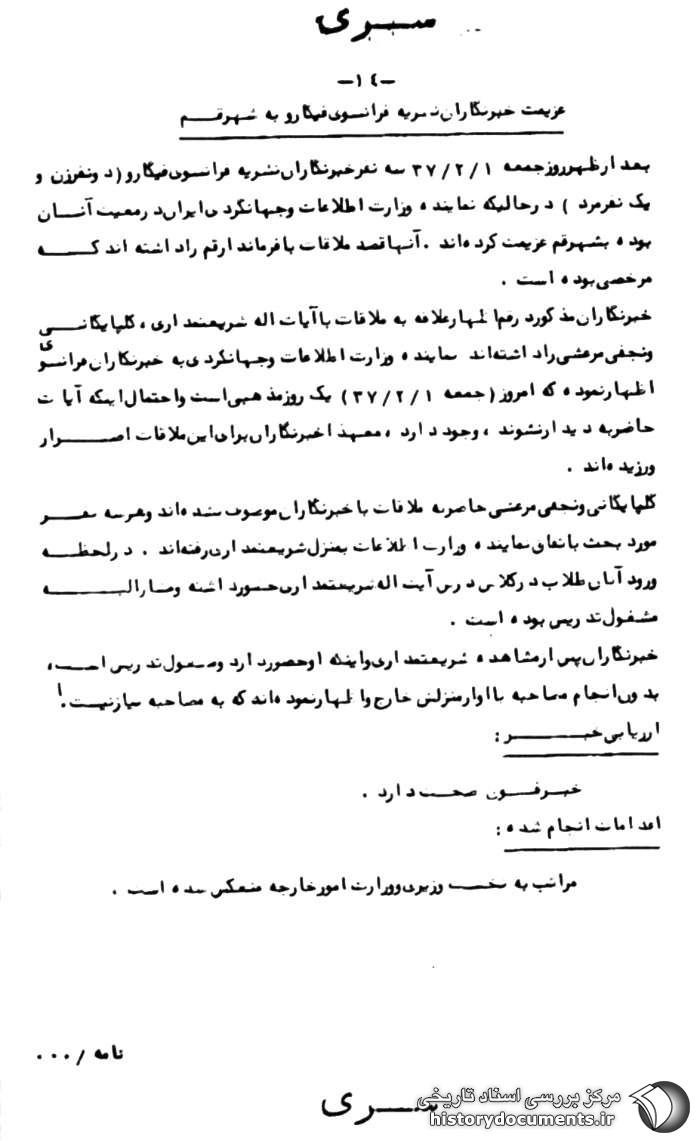 سری
-۱۴-
عزیمت خبرنگاران نشریه فرانسوی فیگارو به شهر قم
بعد از ظهر روز جمعه ۳۷/۲/۱ سه نفر خبرنگاران نشریه فرانسوی فیگارو (دو نفر زن و
یک نفر مرد) در حالیکه نماینده وزارت اطلاعات و جهانگردی ایران در معیت آنان
بوده بشهر قم عزیمت کرده‌اند. آنها قصد ملاقات با فرماندار قم را داشته اند که
مرخصی بوده است.
خبرنگاران مذکور اظهار علاقه به ملاقات با آیات اله شریعتمداری، گلپایگانی
و نجفی مرعشی را داشته‌اند نماینده وزارت اطلاعات و جهانگردی به خبرنگاران فرانسوی
اظهار نموده که امروز (جمعه ۳۷/۲/۱) یک روز مذهبی است و احتمال اینکه آیات
حاضر به دیدار نشوند، وجود دارد، معهذا خبرنگاران برای این ملاقات اصرار
ورزیده‌اند.
گلپایگانی و نجفی مرعشی حاضر به ملاقات با خبرنگاران موصوف نشده‌اند و هر سه نفر
مورد بحث باتفاق نماینده وزارت اطلاعات بمنزل شریعتمداری رفته‌اند. در لحظه
ورود آنان طلاب در کلاس درس آیت اله شریعتمداری حضور داشته و مشارالیه
مشغول تدریس بوده است.
خبرنگاران پس از مشاهده شریعتمداری و اینکه او حضور دارد و مشغول تدریس است،
بدون انجام مصاحبه با او از منزلش خارج و اظهار نموده‌اند که به مصاحبه نیاز نیست.!
ارزیابی خبر:
خبر فوق صحت دارد.
اقدامات انجام شده:
مراتب به نخست وزیری و وزارت امور خارجه منعکس شده است.
نامه /۰۰۰
سری
مرکز بررسی اسناد تاریخی
historydocuments.ir